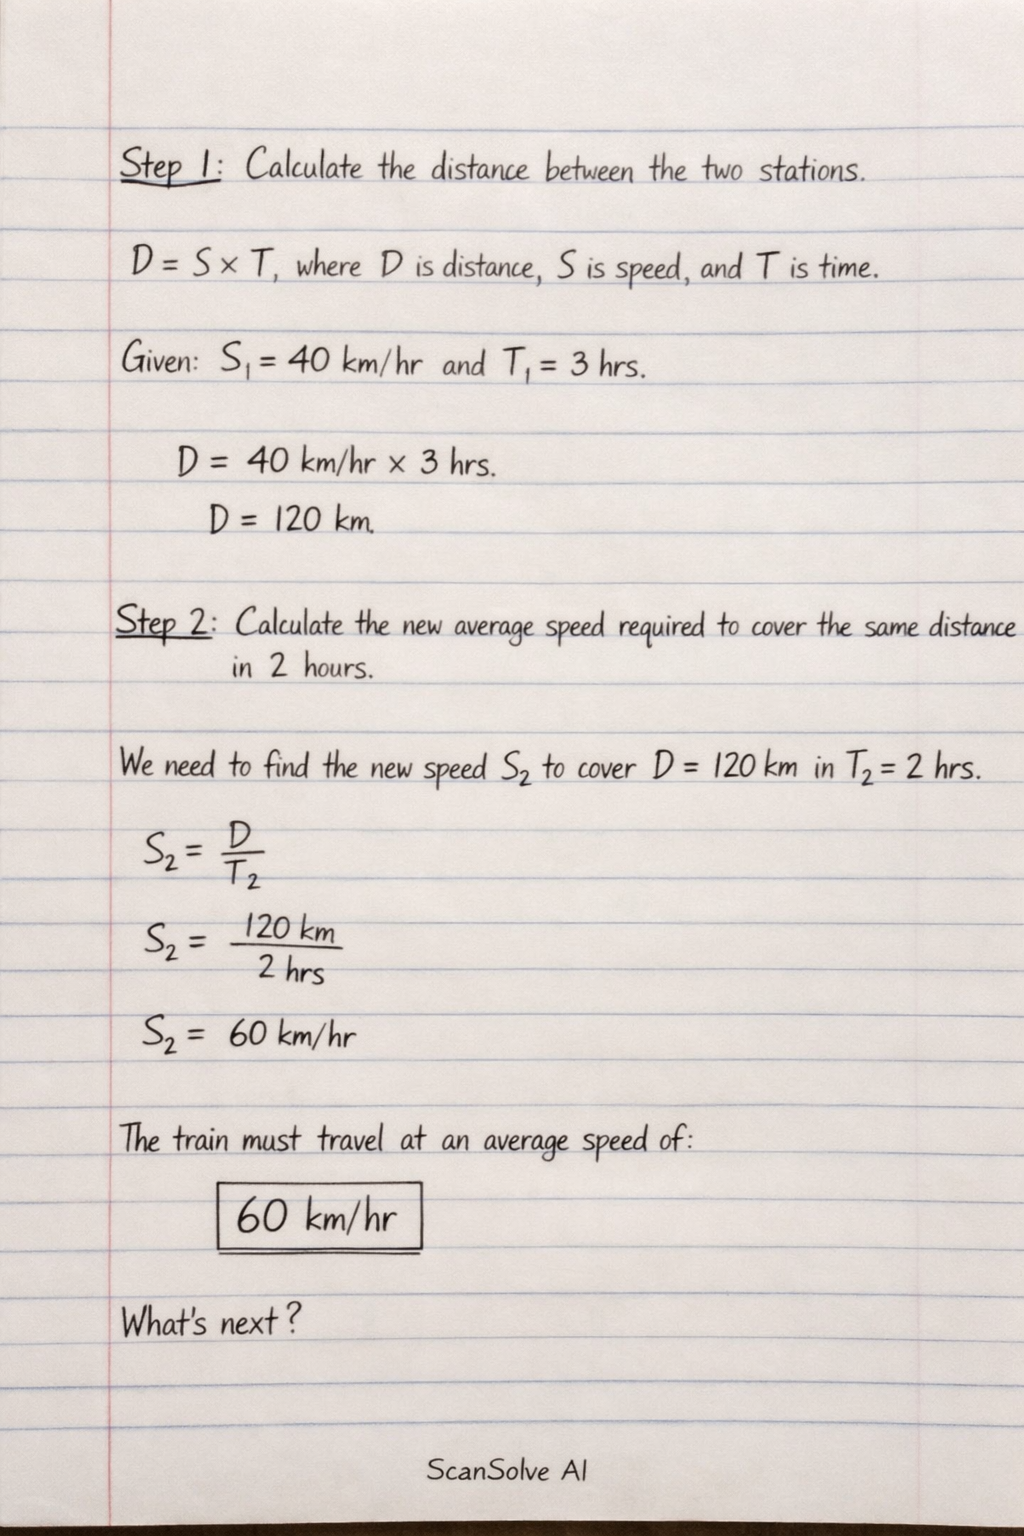 Step 1: Calculate the distance between the two stations.
D = S × T, where D is distance, S is speed, and T is time.
Given: S₁ = 40 km/hr and T₁ = 3 hrs.
D = 40 km/hr × 3 hrs.
D = 120 km.
Step 2: Calculate the new average speed required to cover the same distance
in 2 hours.
We need to find the new speed S₂ to cover D = 120 km in T₂ = 2 hrs.
S₂ = D / T₂
S₂ = 120 km / 2 hrs
S₂ = 60 km/hr
The train must travel at an average speed of:
60 km/hr
What's next?
ScanSolve AI